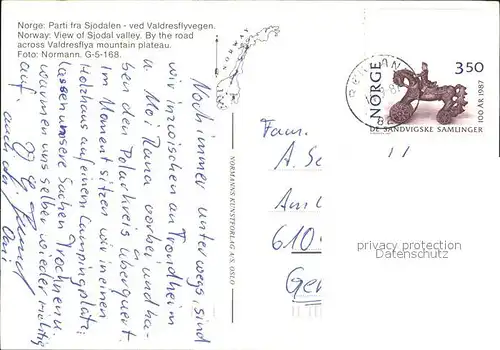 Norge: Parti fra Sjodalen - ved Valdresflyvegen.
Norway: View of Sjodal valley. By the road
across Valdresflya mountain plateau.
Foto: Normann. G-5-168.
Noch immer unterwegs, sind
wir inzwischen an Trondheim
u. Moi Rana vorbei und ha-
ben den Polarkreis überquert.
Im Moment sitzen wir in einem
Holzhaus auf einem Campingplatz,
lassen unsere Sachen trocknen u.
wärmen uns selber wieder richtig
auf.
auch der
Omi
NORWAY
NORMANNS KUNSTFORLAG A/S, OSLO
NORGE
350
100 ÅR 1987
DE SANDVIGSKE SAMLINGER
Fam.
A. Sc
Am
610
Ger
privacy protection
Datenschutz